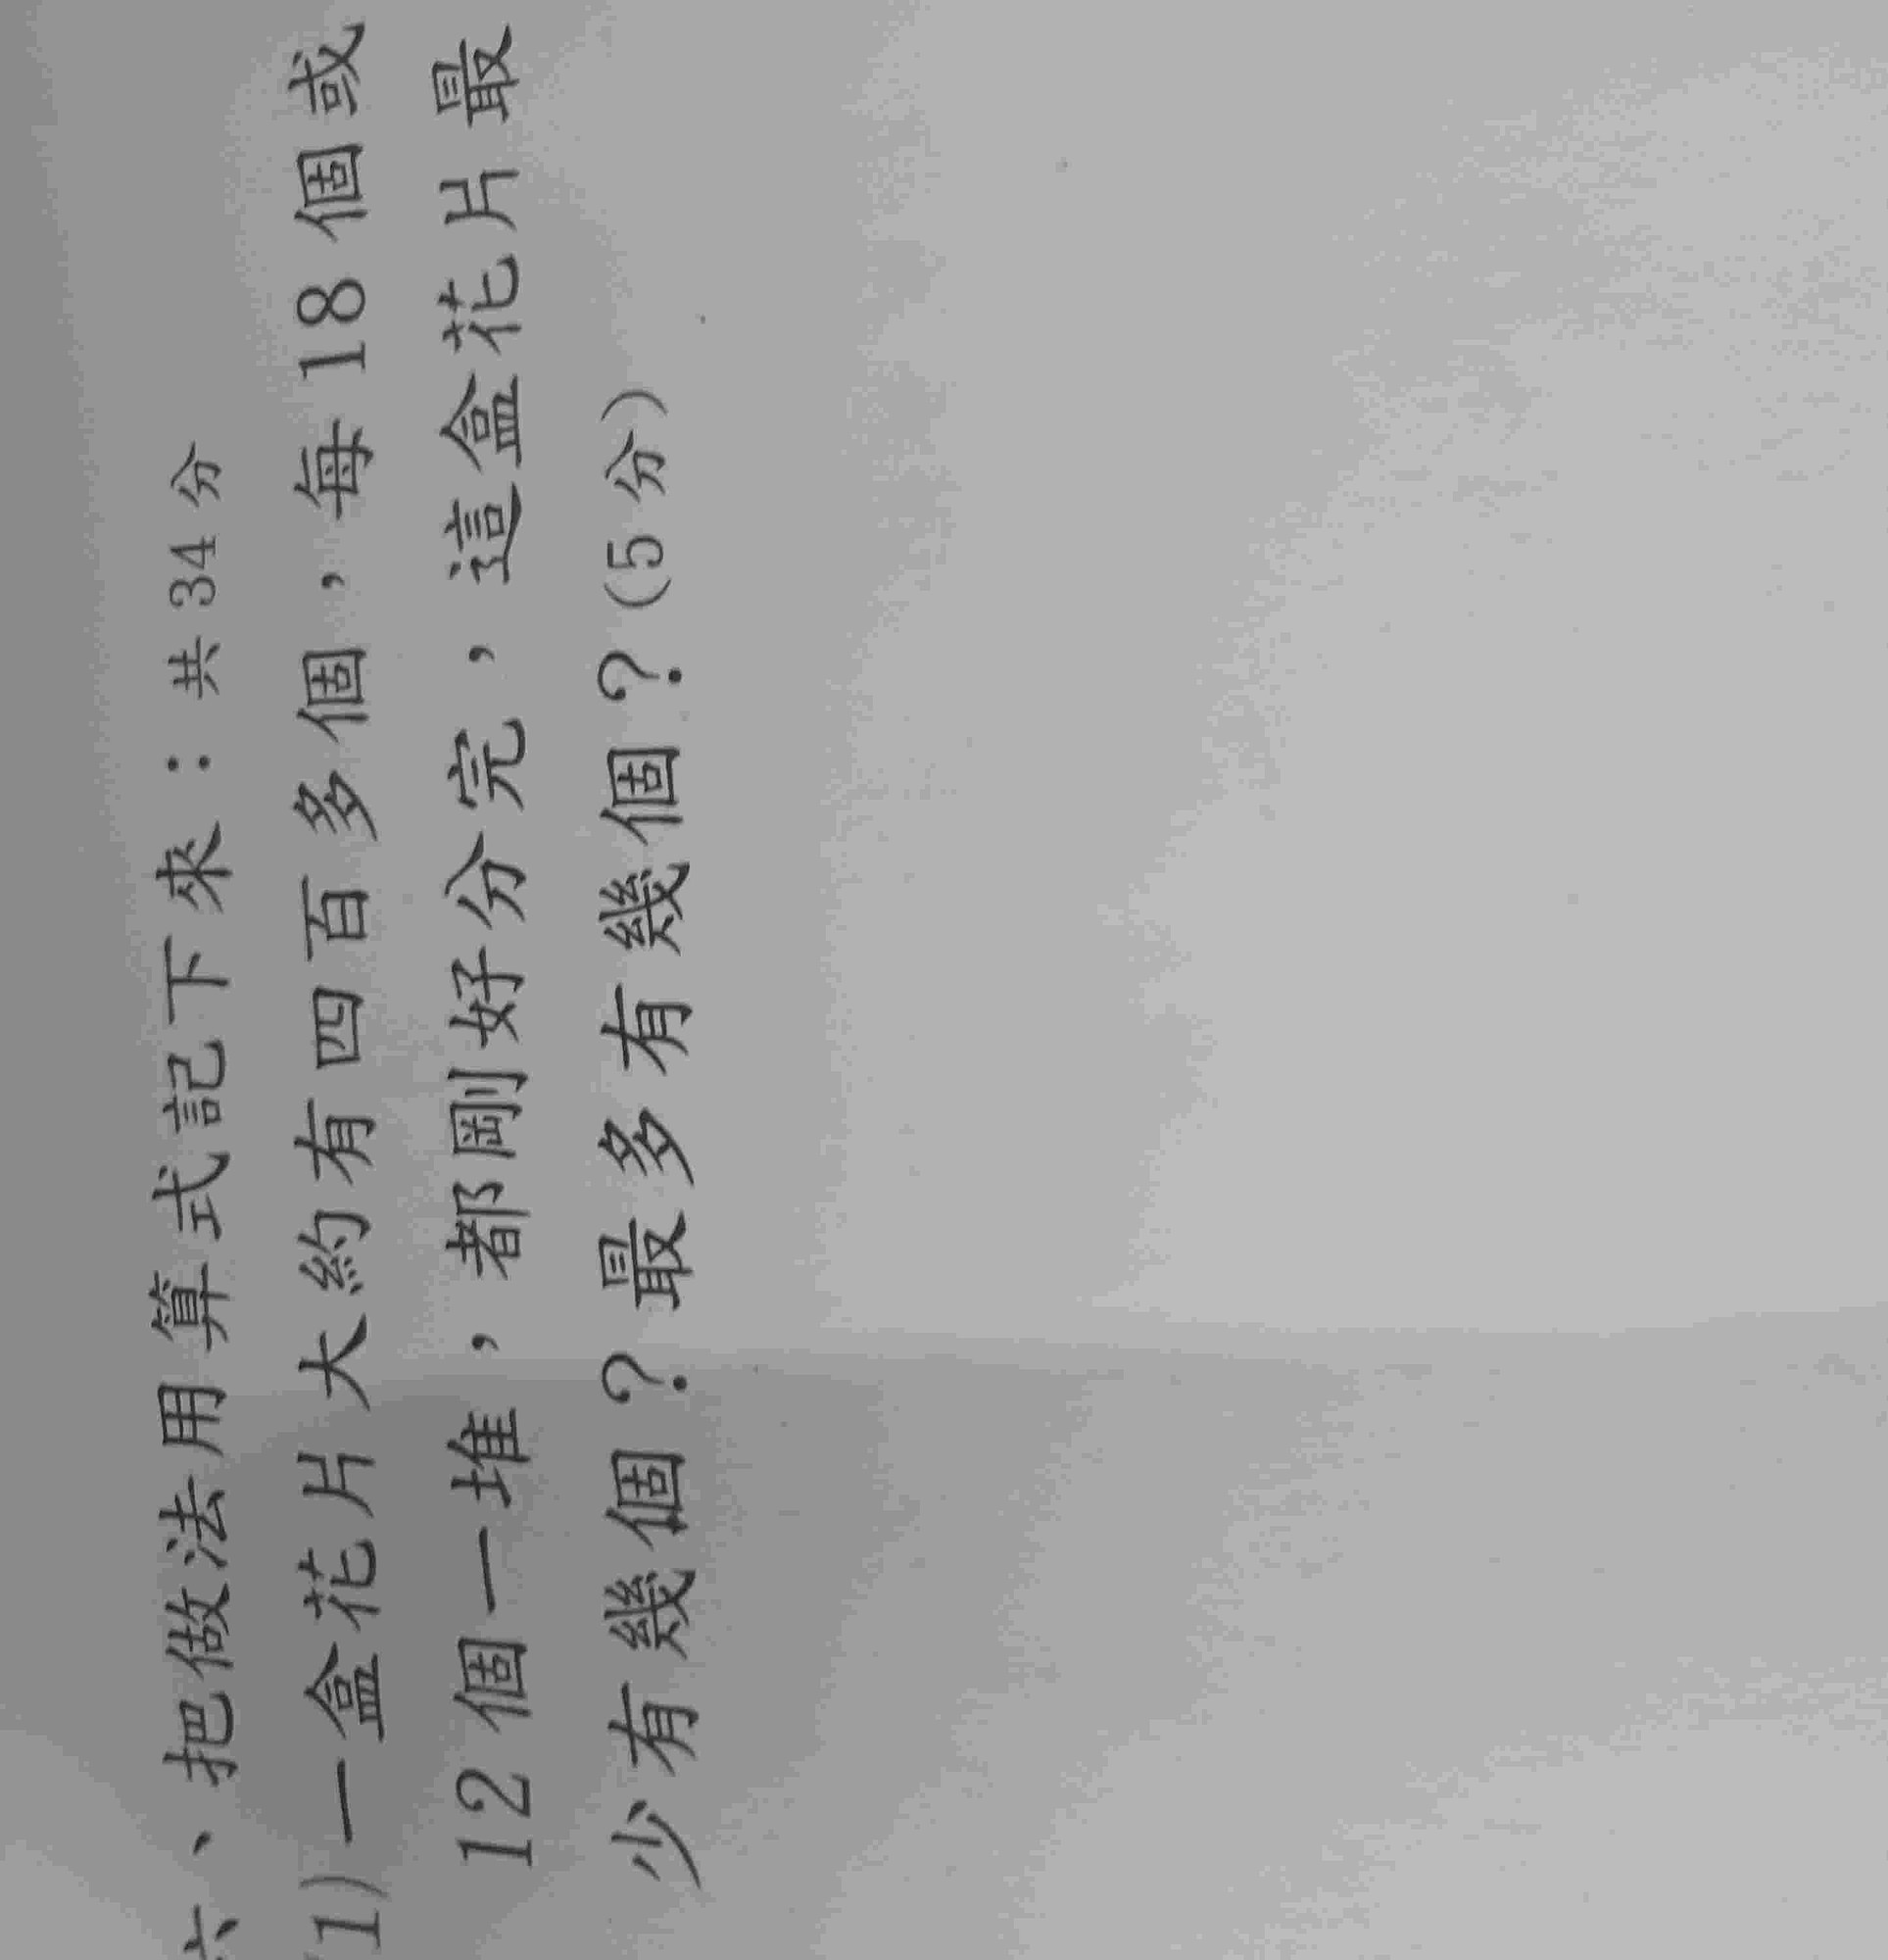 六、把做法用算式記下來：共34分
(1)一盒花片大約有四百多個，每18個或
12個一堆，都剛好分完，這盒花片最
少有幾個？最多有幾個？(5分)